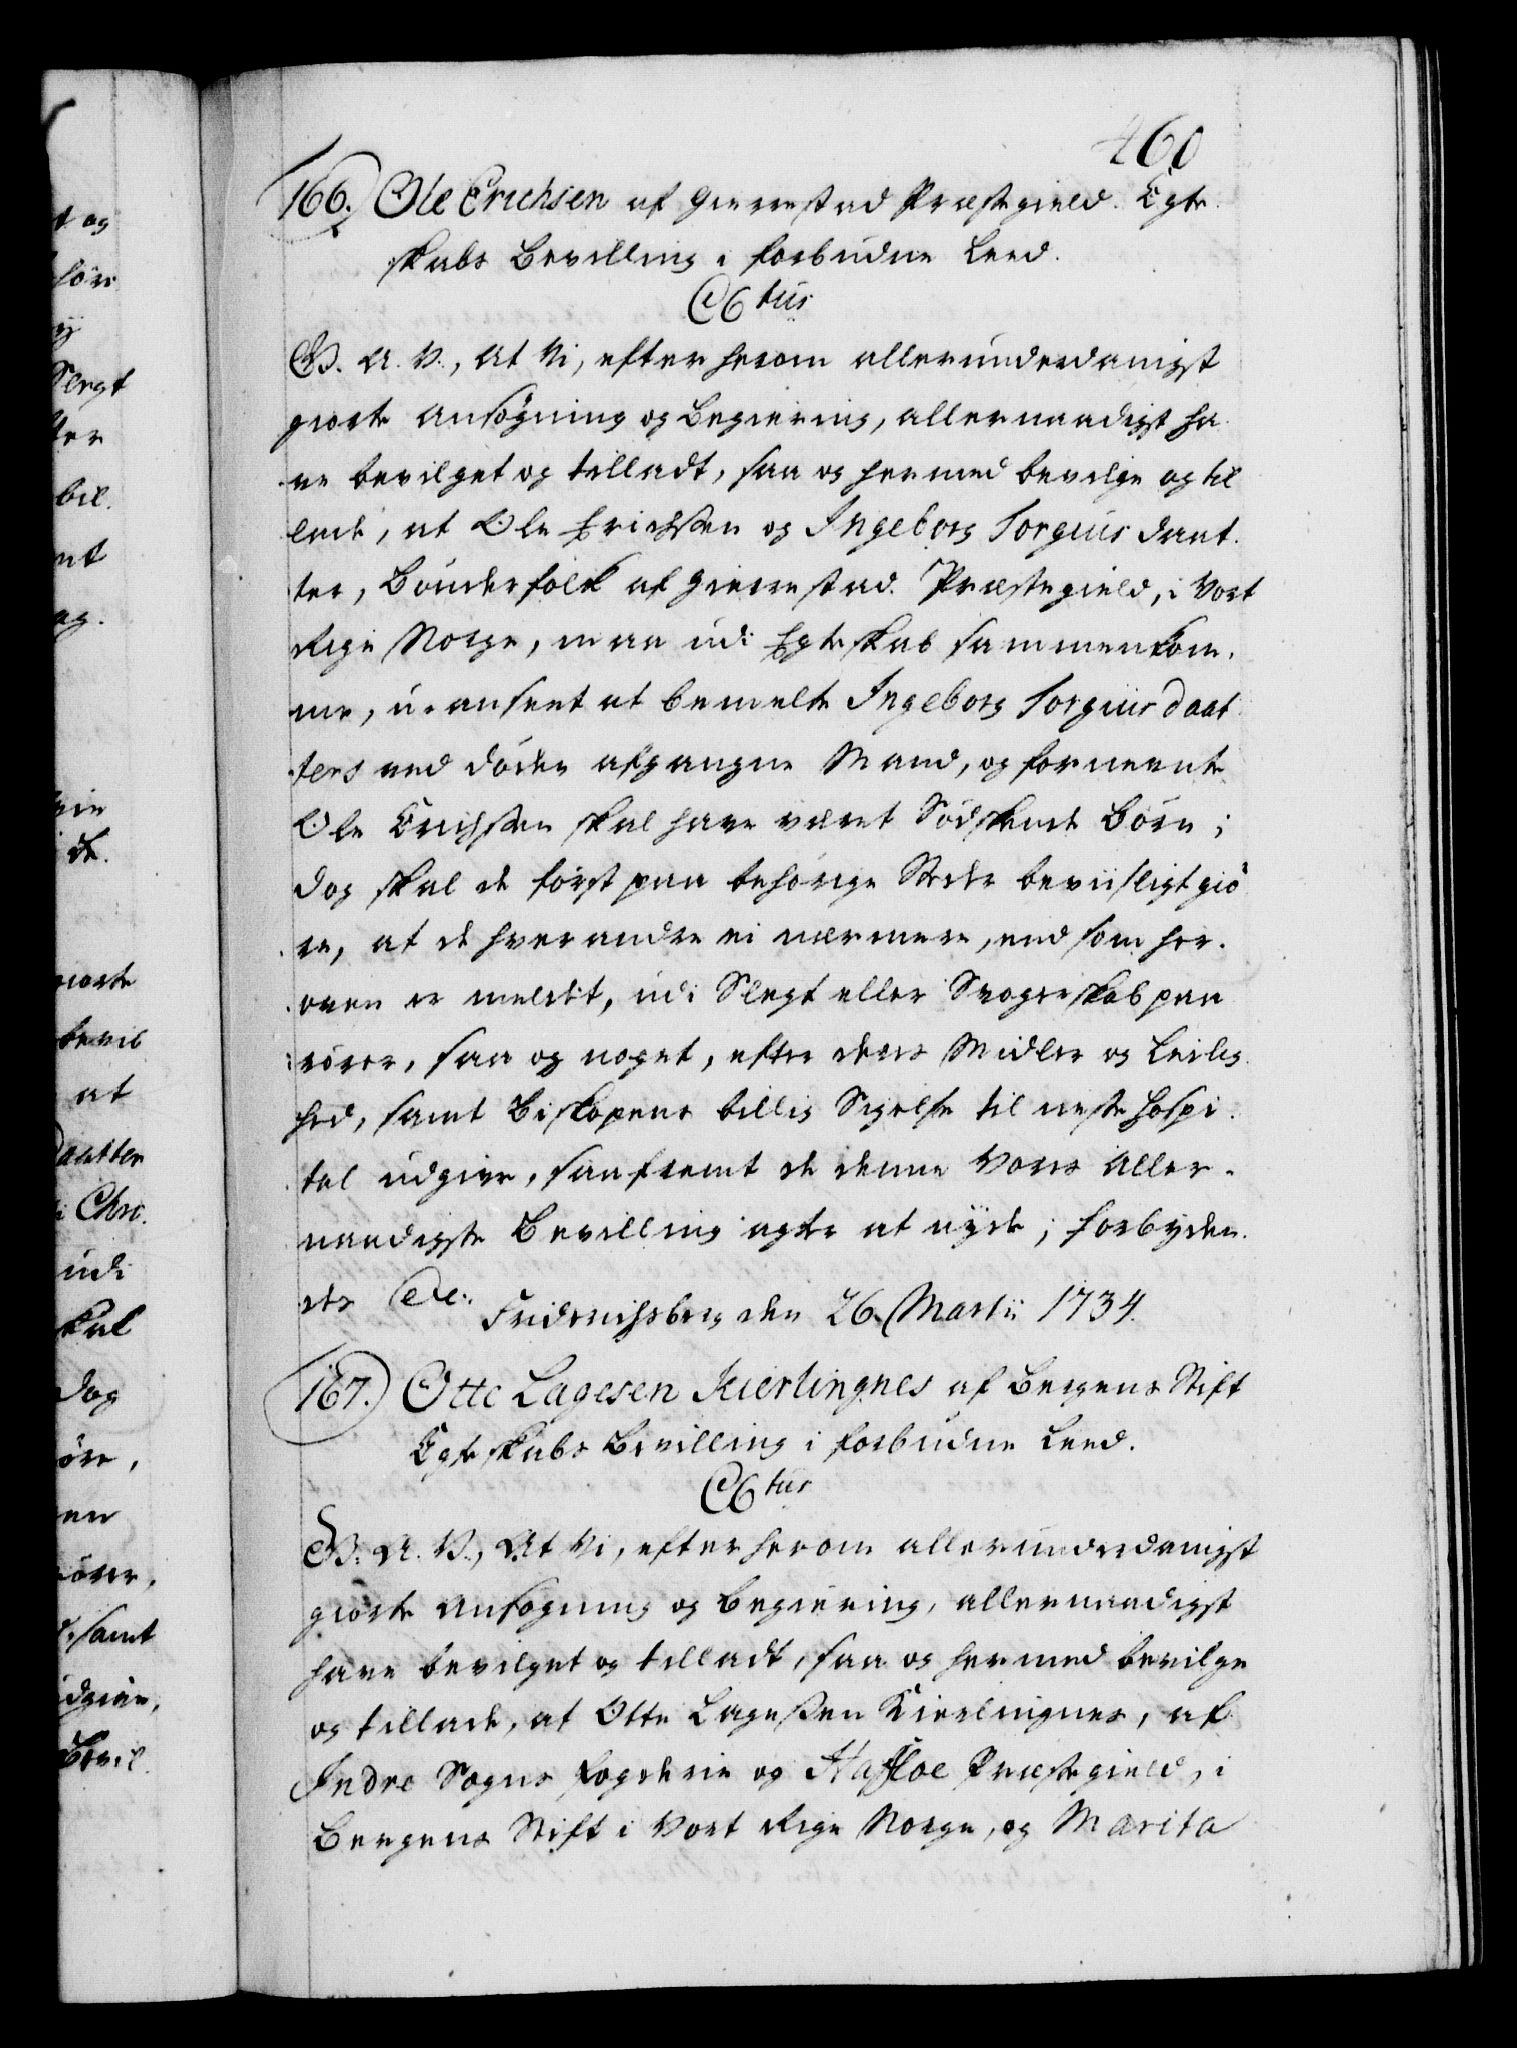 460
166. Ole Erichsen af Gierrestad Præstegield. Egte-
skabs Bevilling i forbudne Leed.
C6tus
G. A. V., At Vi, efter herom allerunderdanigst
giorte Ansøgning og Begiering, allernaadigst ha-
ve bevilget og tilladt, saa og hermed bevilge og til-
lade, at Ole Erichssen og Ingeborg Torgiusdaat-
ter, Bønderfolk af Gierrestad Præstegield, i Vort
Rige Norge, maa udi Egteskab sammenkom-
me, u-anseet at bemelte Ingeborg Torgiusdaat-
ters ved Døden afgangne Mand, og fornevnte
Ole Erichssen skal have været Södskende Börn;
dog skal de först paa behörige Stæder beviisligt giö-
re, at de hverandre ei nærmere, end som her-
oven er meldet, udi Slegt eller Svogerskab paa-
rörer, saa og noget, efter deres Midler og Leilig-
hed, samt Biskopens billig Sigelse til neste Hospi-
tal udgive, saafremt de denne Vores Aller-
naadigste Bevilling agter at nyde; Forbyden-
des &c. Friderichsberg den 26. Martii 1734.
167. Otte Lagesen Kierlingnes af Bergens Stift
Egteskabs Bevilling i forbudne Leed.
C6tus
G. A. V., At Vi, efter herom allerunderdanigst
giorte Ansøgning og Begiering, allernaadigst
have bevilget og tilladt, saa og hermed bevilge
og tillade, at Otte Lagessen Kierlingnes, af
Indre Sogns Fogderie og Hafsloe Præstegield, i
Bergens Stift i Vort Rige Norge, og Marita